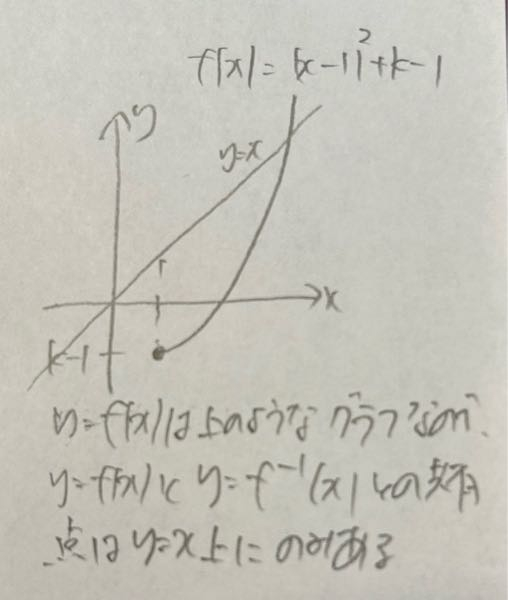 f(x)=(x-1)²+k-1
y
y=x
1
x
k-1
y=f(x)は上のようなグラフなので、
y=f(x)とy=f⁻¹(x)との共有
点はy=x上にのみある